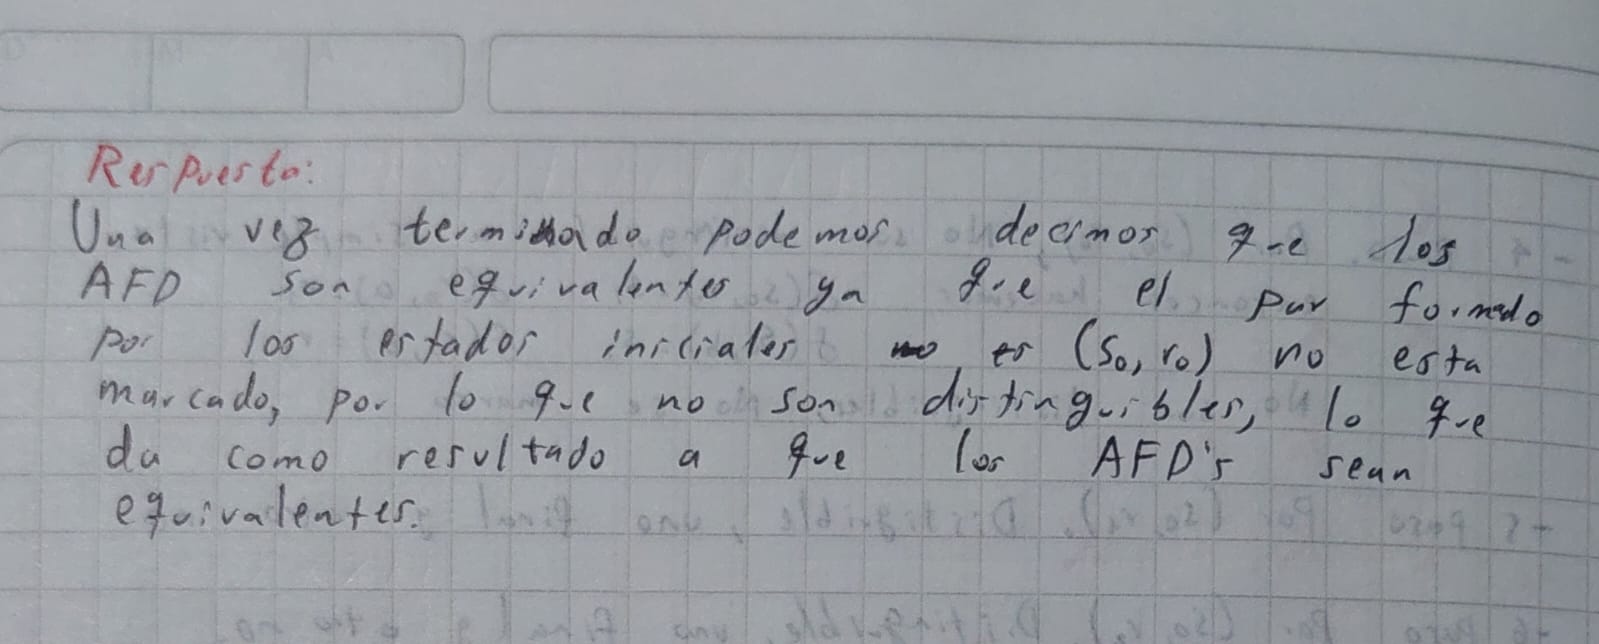 Respuesta:
Una vez terminado podemos decirnos que los
AFD son equivalentes ya que el par formado
por los estados iniciales es (So, ro) no esta
marcado, por lo que no son distinguibles, lo que
da como resultado a que los AFD's sean
equivalentes.